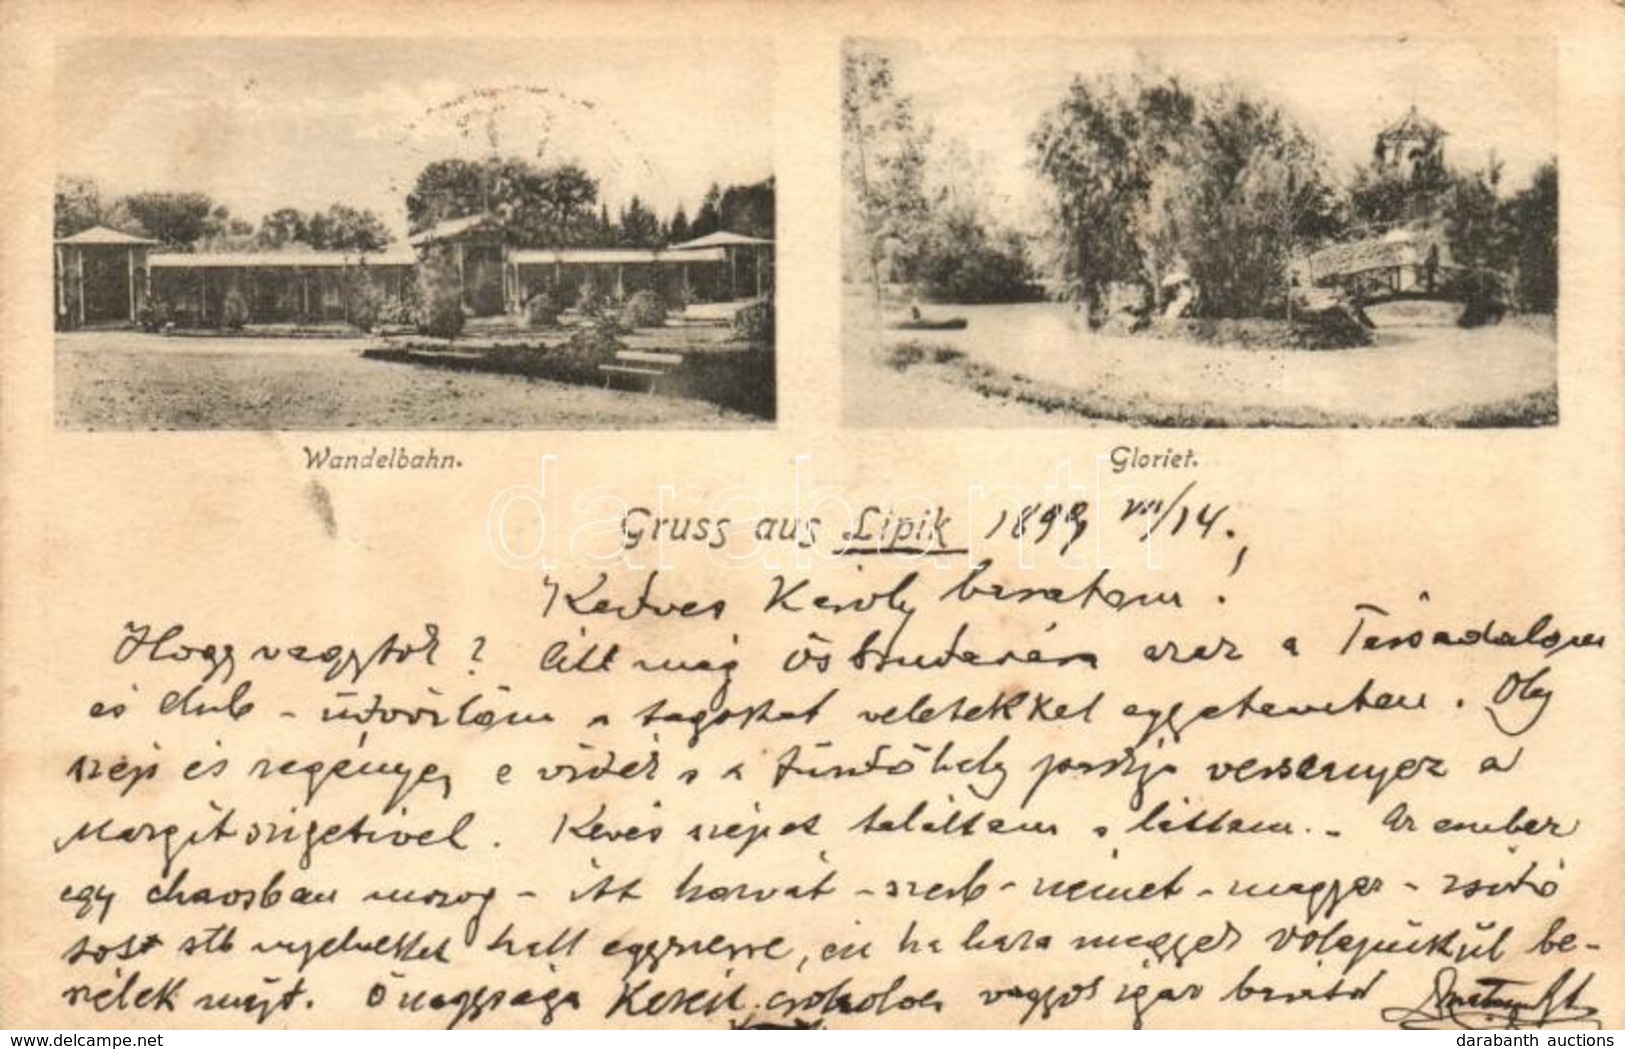 Wandelbahn.
Gloriet.
darabanth
Gruss aus Lipik 1899 VII/14.
Kedves Károly barátom!
Hogy vagytok? itt még Ősbudavára azaz a Társadalom
és club - üdvözlöm a tagokat veletekkel egyetemben. Oly
szép és regényes e vidék s a fürdőhely parkja versenyez a
Margitszigetivel. Kevés szépet találtam s láttam. - Az ember
egy chaosban mozog - itt horvát - szerb - német - magyar - zsidó
stb nyelveket hall egyszerre, én ha haza megyek volapükül be-
szélek majd. Őnagysága kezeit csókolom vagyok igaz barátod
delcampe.net
darabanth auctions